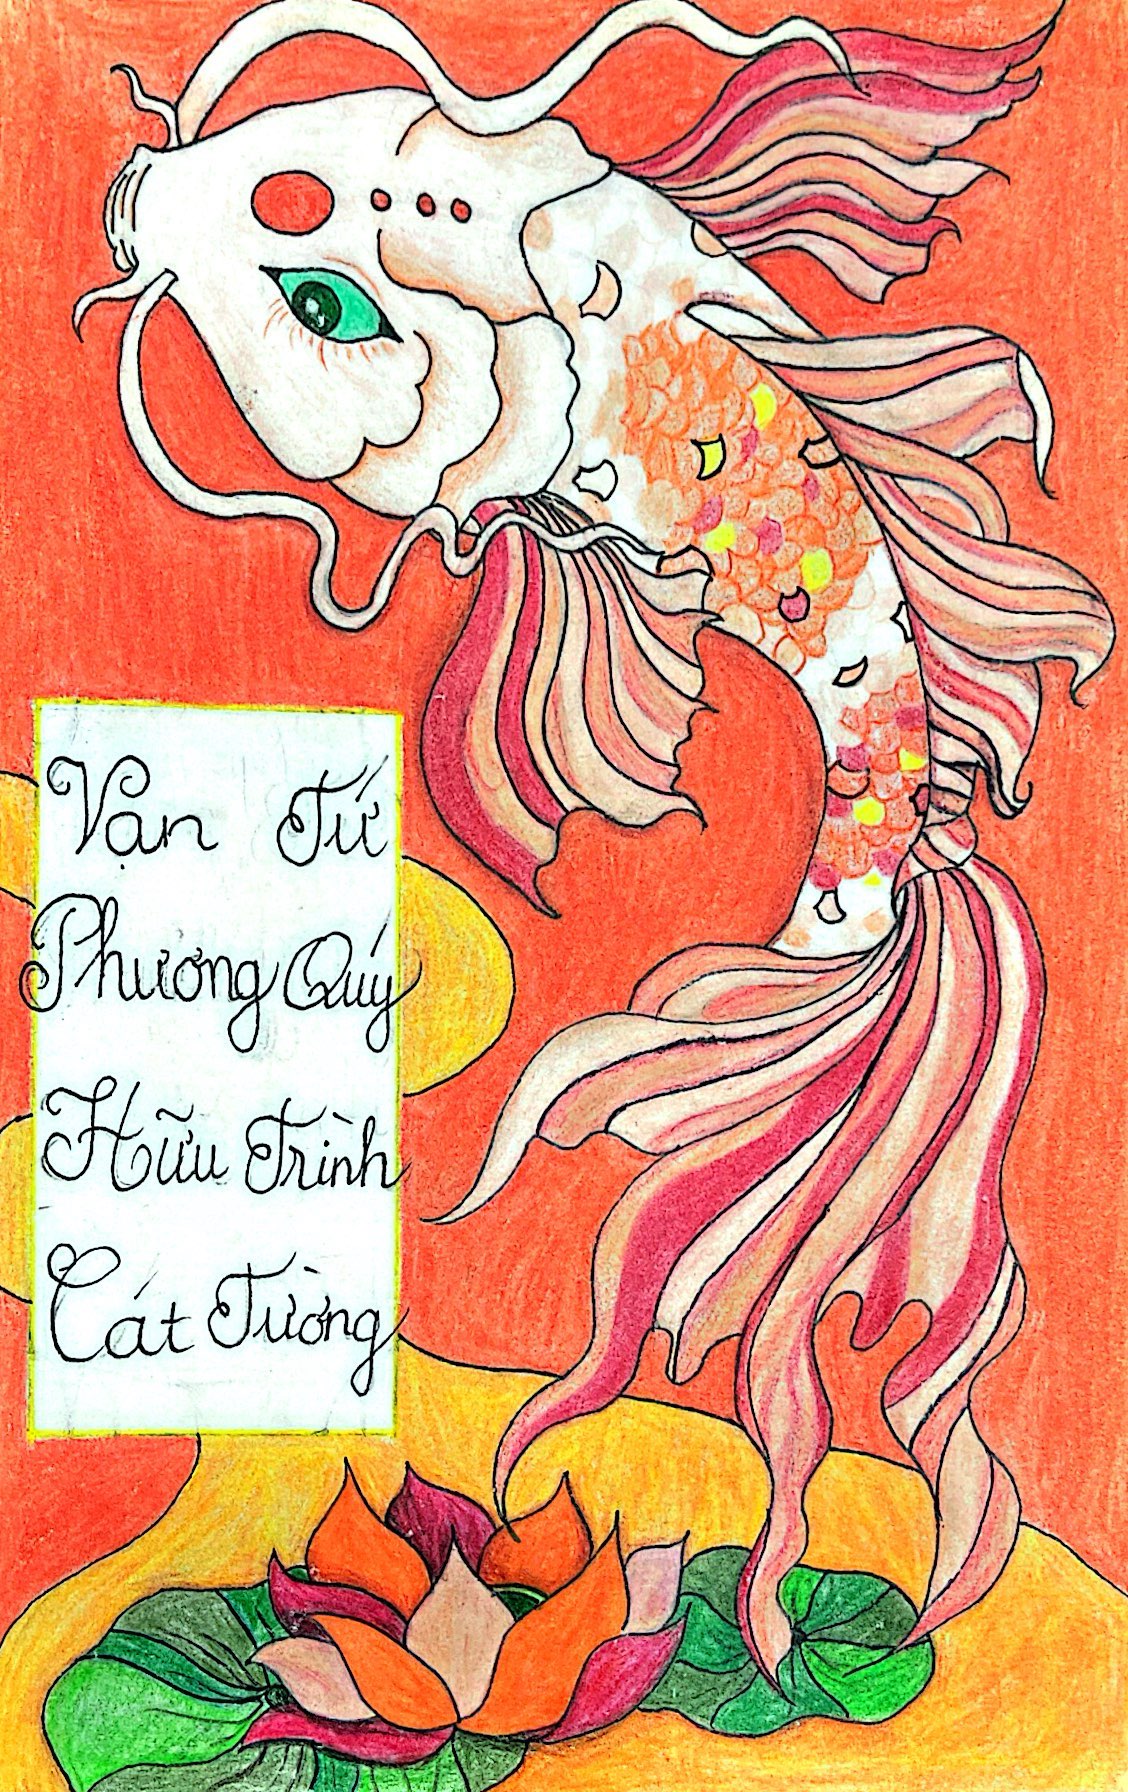 Vạn Tứ
Phương Quý
Hữu Trình
Cát Tường